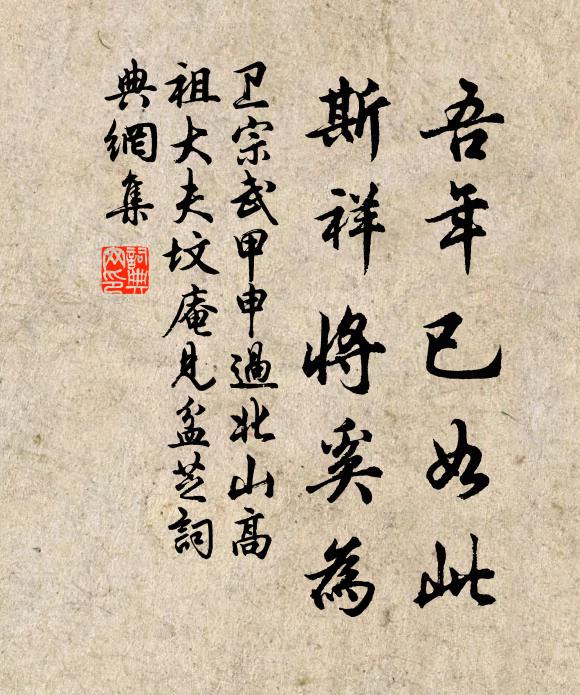 吾年已如此
斯祥將奚為
卫宗武甲申過北山高
祖大夫坟庵見盆芝詞
典網集
詞典
网印